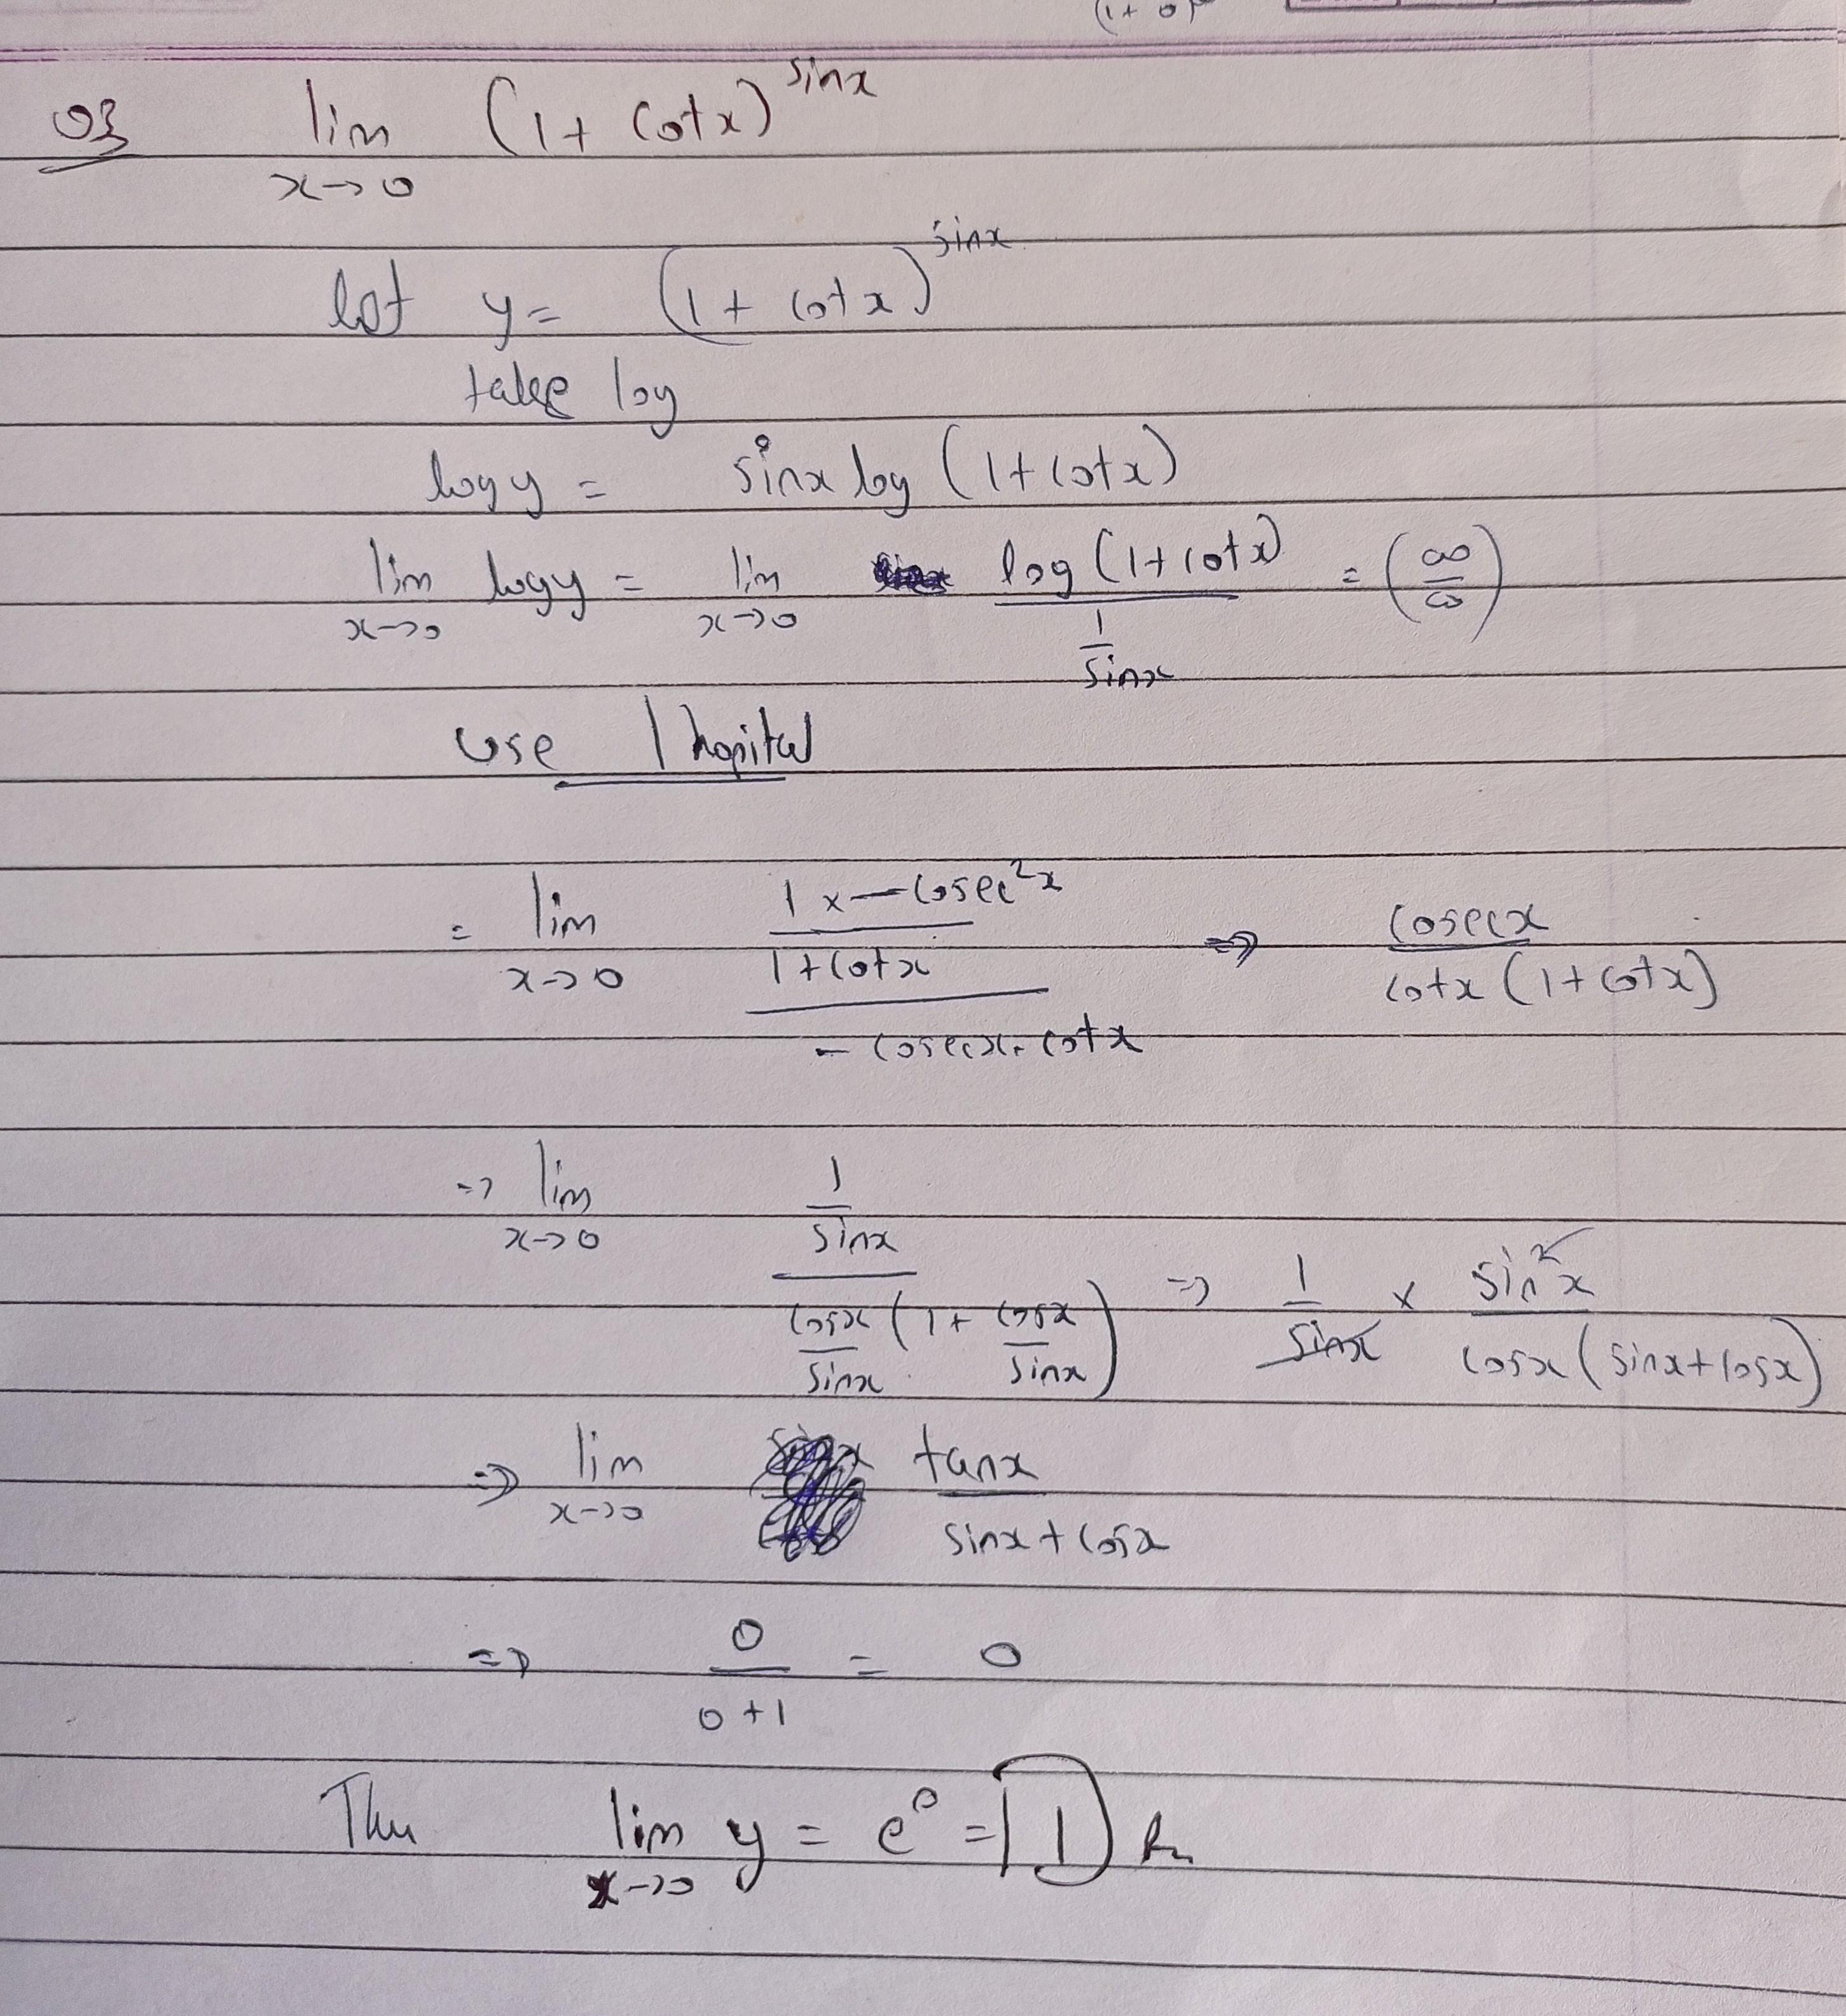 (1 + 0)
Q3 lim x→0 (1 + cotx)^sinx
let y = (1 + cotx)^sinx
take log
logy = sinx log (1 + cotx)
lim x→0 logy = lim x→0 log (1 + cotx) / (1/sinx) = (∞/∞)
use l hopital
= lim x→0 ((1 x - cosec²x) / (1 + cotx)) / (- cosecx . cotx) ⇒ cosecx / (cotx (1 + cotx))
⇒ lim x→0 (1/sinx) / ((cosx/sinx) (1 + cosx/sinx)) ⇒ 1/sinx x sin²x / (cosx (sinx + cosx))
⇒ lim x→0 tanx / (sinx + cosx)
⇒ 0 / (0 + 1) = 0
lim x→0 y = e⁰ = 1